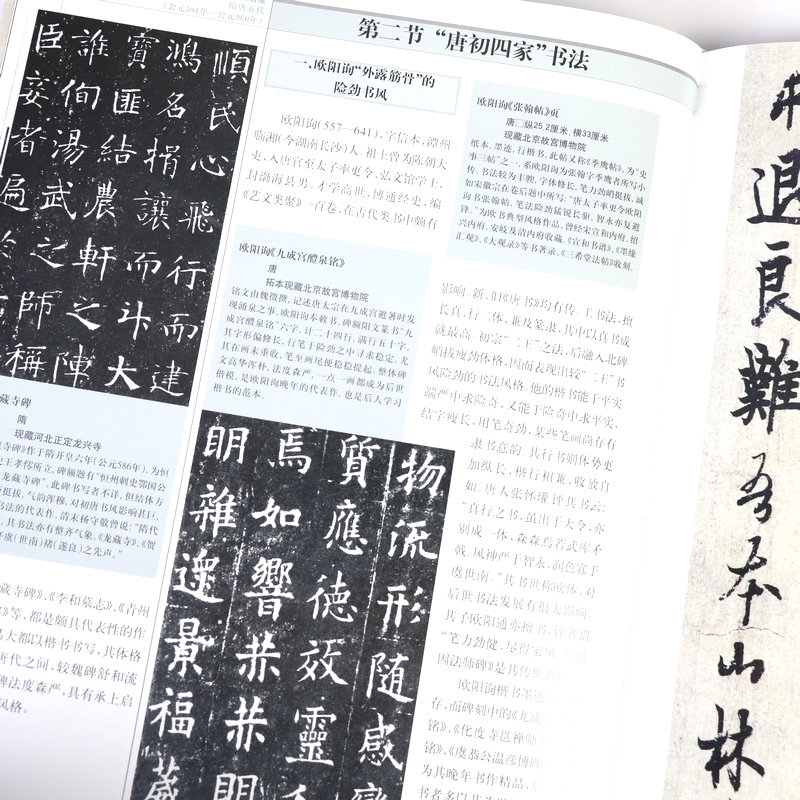 隋唐五代
(公元581年—公元960年)
第二节 “唐初四家”书法
順民心飛行而建
鴻名揖讓而升大
寶匪結農軒之陣
誰侚湯武之師稱
臣妾者遍
一、欧阳询“外露筋骨”的
险劲书风
欧阳询(557—641),字信本,潭州
临湘(今湖南长沙)人。祖上曾为陈朝大
吏,入唐官至太子率更令、弘文馆学士,
封渤海县男。才学高世,博通经史,编
《艺文类聚》一百卷,在古代类书中颇有
欧阳询《九成宫醴泉铭》
唐
拓本现藏北京故宫博物院
铭文由魏徵撰,记述唐太宗在九成宫避暑时发
现涌泉之事,欧阳询奉敕书。碑额阳文篆书“九
成宫醴泉铭”六字。计二十四行,满行五十字。
其字形偏修长,行笔于险劲之中寻求稳定,尤
其在画末重收,笔至画尾便稳稳提起。整体碑
文高华浑朴,法度森严,一点一画都成为后世
楷模,是欧阳询晚年的代表作,也是后人学习
楷书的范本。
物流形隨感
質應德效靈
焉如響赫赫明
明雜遝景福葳
欧阳询《张翰帖》页
唐□纵25.2厘米,横33厘米
现藏北京故宫博物院
纸本,墨迹,行楷书。此帖又称《季鹰帖》,为“史
事三帖”之一,系欧阳询为张翰字季鹰者所写小
传。书法较为丰腴,字体修长,笔力劲峭挺拔,诚
如宋徽宗在卷后题中所写:“唐太子率更令欧阳
询书张翰帖,笔法险劲猛锐长驱,智永亦复避
锋。”为欧书典型风格作品。曾经宋宣和内府、绍
兴内府、安岐及清内府收藏。《宣和书谱》、《墨缘
汇观》、《大观录》等书著录。《三希堂法帖》收刻。
影响。新、旧《唐书》均有传。工书法,擅
长真、行二体,兼及篆隶,其中以真书成
就最高。初宗“二王”之法,后融入北碑
峭拔瘦劲体格,因而表现出较“二王”书
风险劲的书法风格。他的楷书能于平实
端严中求险奇,又能于险奇中求平实,
结字瘦长,用笔奇劲,某些笔画尚存有
隶书意韵。其行书则体势更
加纵长,楷行相兼,收放自
如。唐人张怀瓘评其书云:
“真行之书,虽出于大令,亦
别成一体,森森焉若武库矛
戟,风神严于智永,润色寡于
虞世南。”其书世称欧体,对
后世书法发展有很大影响。
其子欧阳通亦擅书,评者谓
“笔力劲健,尽得家风”,
因法师碑》是其传世
欧阳询楷书墨
存,而碑刻中的《九成
铭》、《化度寺邕禅师
铭》、《虞恭公温彦博碑
为其晚年书作精品,
藏寺碑
隋
现藏河北正定龙兴寺
寺碑》作于隋开皇六年(公元586年),为恒
史王孝伥所立。碑额题有“恒州刺史鄂国公
龙藏寺碑”。此碑书写者不详,但结体方
挺拔,气韵浑穆,对初唐书风影响甚巨,
书法的代表作。清末杨守敬曾说:“隋代
,其书法亦有整齐气象,《龙藏寺》、《贺
虞(世南)褚(遂良)之先声。”
藏寺碑》、《李和墓志》、《青州
》等,都是颇具代表性的作
大都以楷书书写,其体格
唐代之间,较魏碑舒和流
碑法度森严,具有承上启
风格。
退良難吾本山林